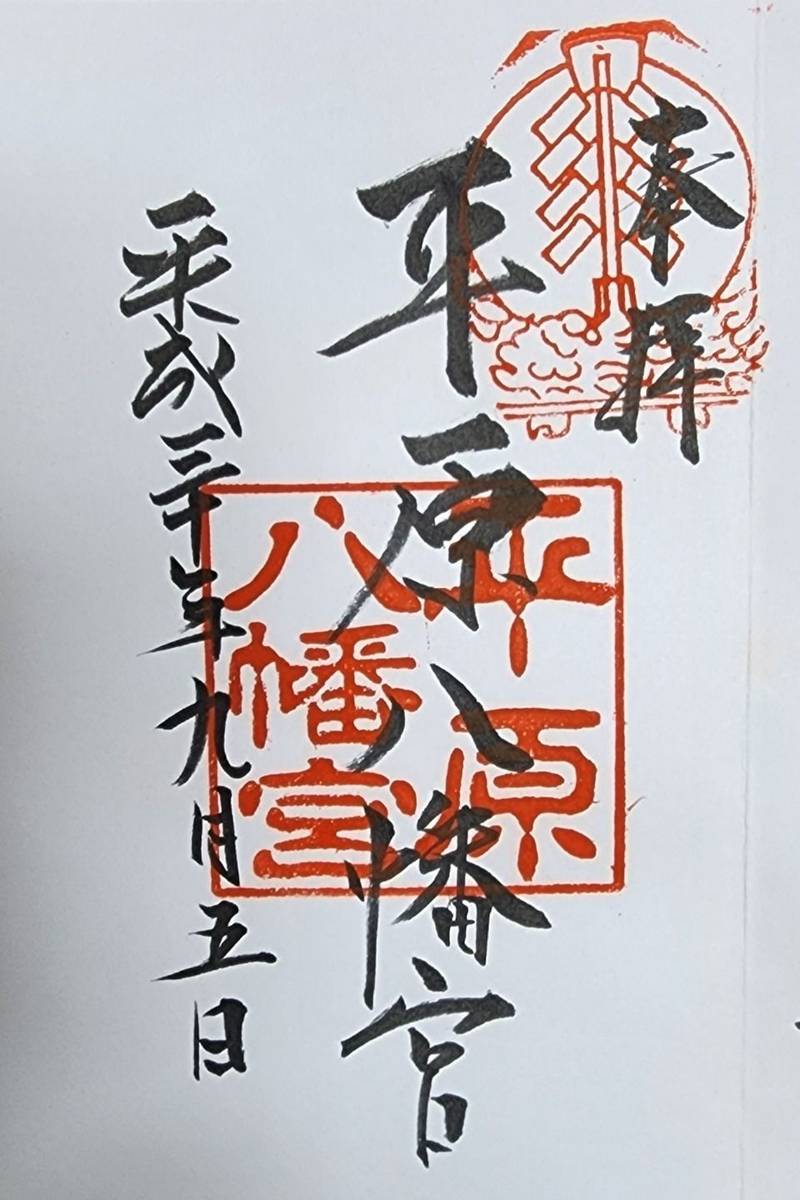 奉拝
平原八幡宮
平原
八幡宮
平成三十年九月五日